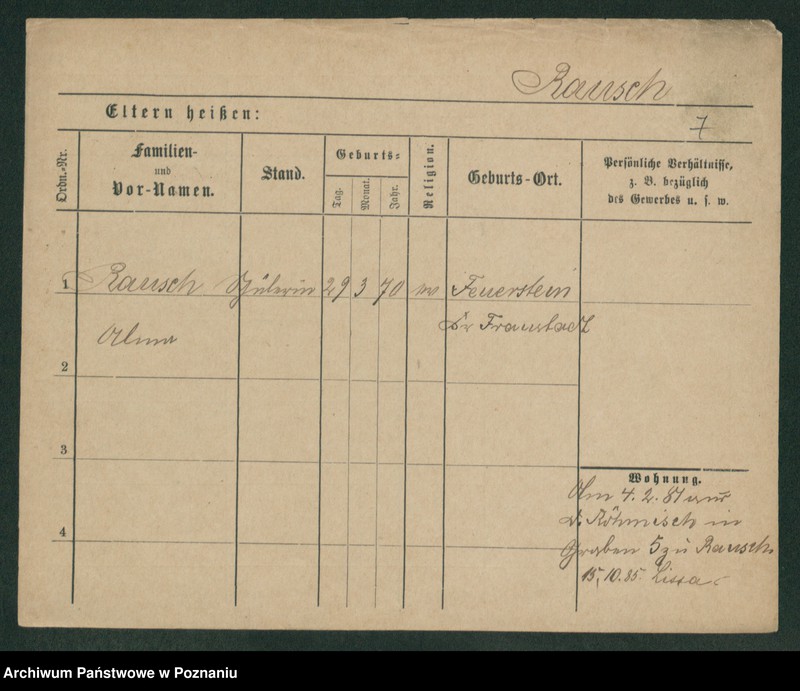 Rausch
Eltern heißen:
7
Ordn.-Nr.
Familien-
und
Vor-Namen.
Stand.
Geburts-
Tag.
Monat.
Jahr.
Religion.
Geburts-Ort.
Persönliche Verhältnisse,
z. B. bezüglich
des Gewerbes u. s. w.
1 Rausch Schülerin 29 3 70 Feuerstein
Alma Kr Fraustadt
2
3
Wohnung.
4. 2. 81
in
4 Graben 5 zu Rausch
15. 10. 85. Lissa
Archiwum Państwowe w Poznaniu